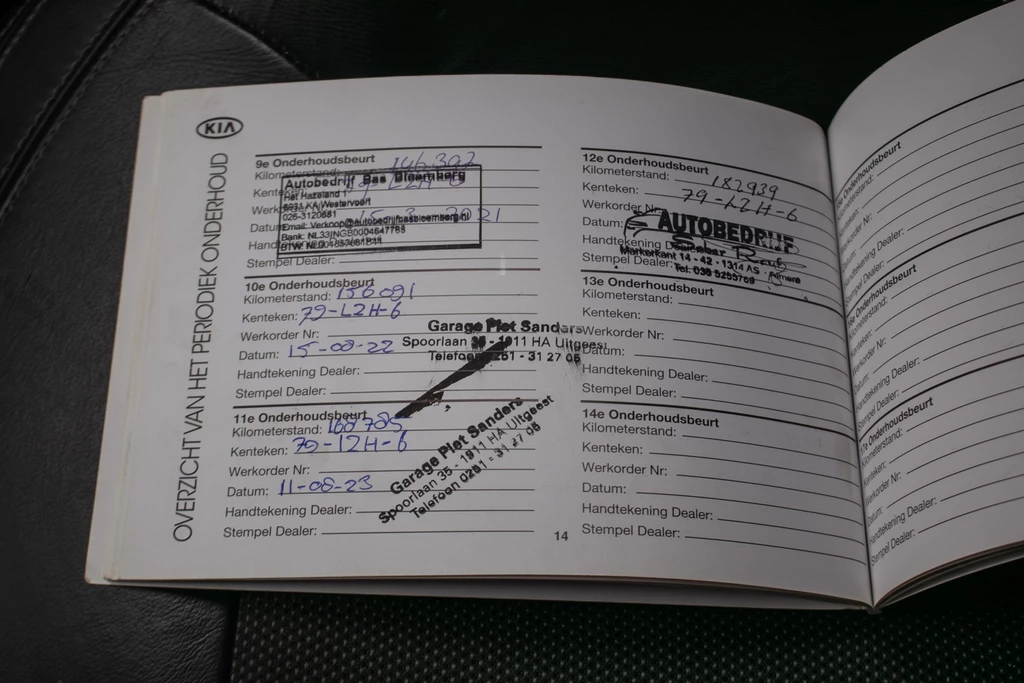 KIA
OVERZICHT VAN HET PERIODIEK ONDERHOUD
9e Onderhoudsbeurt
Kilometerstand: 146.392
Kenteken: 79-L2H-6
Datum: 15-3-2021
Stempel Dealer:
Autobedrijf Bas Bloemberg
Het Hazeland 1
6931 KA Westervoort
026-3120881
Email: Verkoop@autobedrijfbasbloemberg.nl
10e Onderhoudsbeurt
Kilometerstand: 156091
Kenteken: 79-L2H-6
Werkorder Nr:
Datum: 15-08-22
Handtekening Dealer:
Stempel Dealer:
Garage Piet Sanders
Spoorlaan 35 - 1911 HA Uitgeest
Telefoon 0251 - 31 27 05
11e Onderhoudsbeurt
Kilometerstand: 160705
Kenteken: 79-L2H-6
Werkorder Nr:
Datum: 11-08-23
Handtekening Dealer:
Stempel Dealer:
Garage Piet Sanders
Spoorlaan 35 - 1911 HA Uitgeest
Telefoon 0251 - 31 27 05
14
12e Onderhoudsbeurt
Kilometerstand: 182939
Kenteken: 79-L2H-6
Werkorder Nr:
Datum:
Handtekening Dealer:
Stempel Dealer:
AUTOBEDRIJF
Markerkant 14 - 42 - 1314 AS - Almere
Tel. 036 5255769
13e Onderhoudsbeurt
Kilometerstand:
Kenteken:
Werkorder Nr:
Datum:
Handtekening Dealer:
Stempel Dealer:
14e Onderhoudsbeurt
Kilometerstand:
Kenteken:
Werkorder Nr:
Datum:
Handtekening Dealer:
Stempel Dealer:
Onderhoudsbeurt
Kilometerstand:
Kenteken:
Werkorder Nr:
Datum:
Handtekening Dealer:
Stempel Dealer:
Onderhoudsbeurt
Kilometerstand:
Kenteken:
Werkorder Nr:
Datum:
Handtekening Dealer:
Stempel Dealer:
Onderhoudsbeurt
Kilometerstand:
Kenteken:
Werkorder Nr:
Datum:
Handtekening Dealer:
Stempel Dealer: